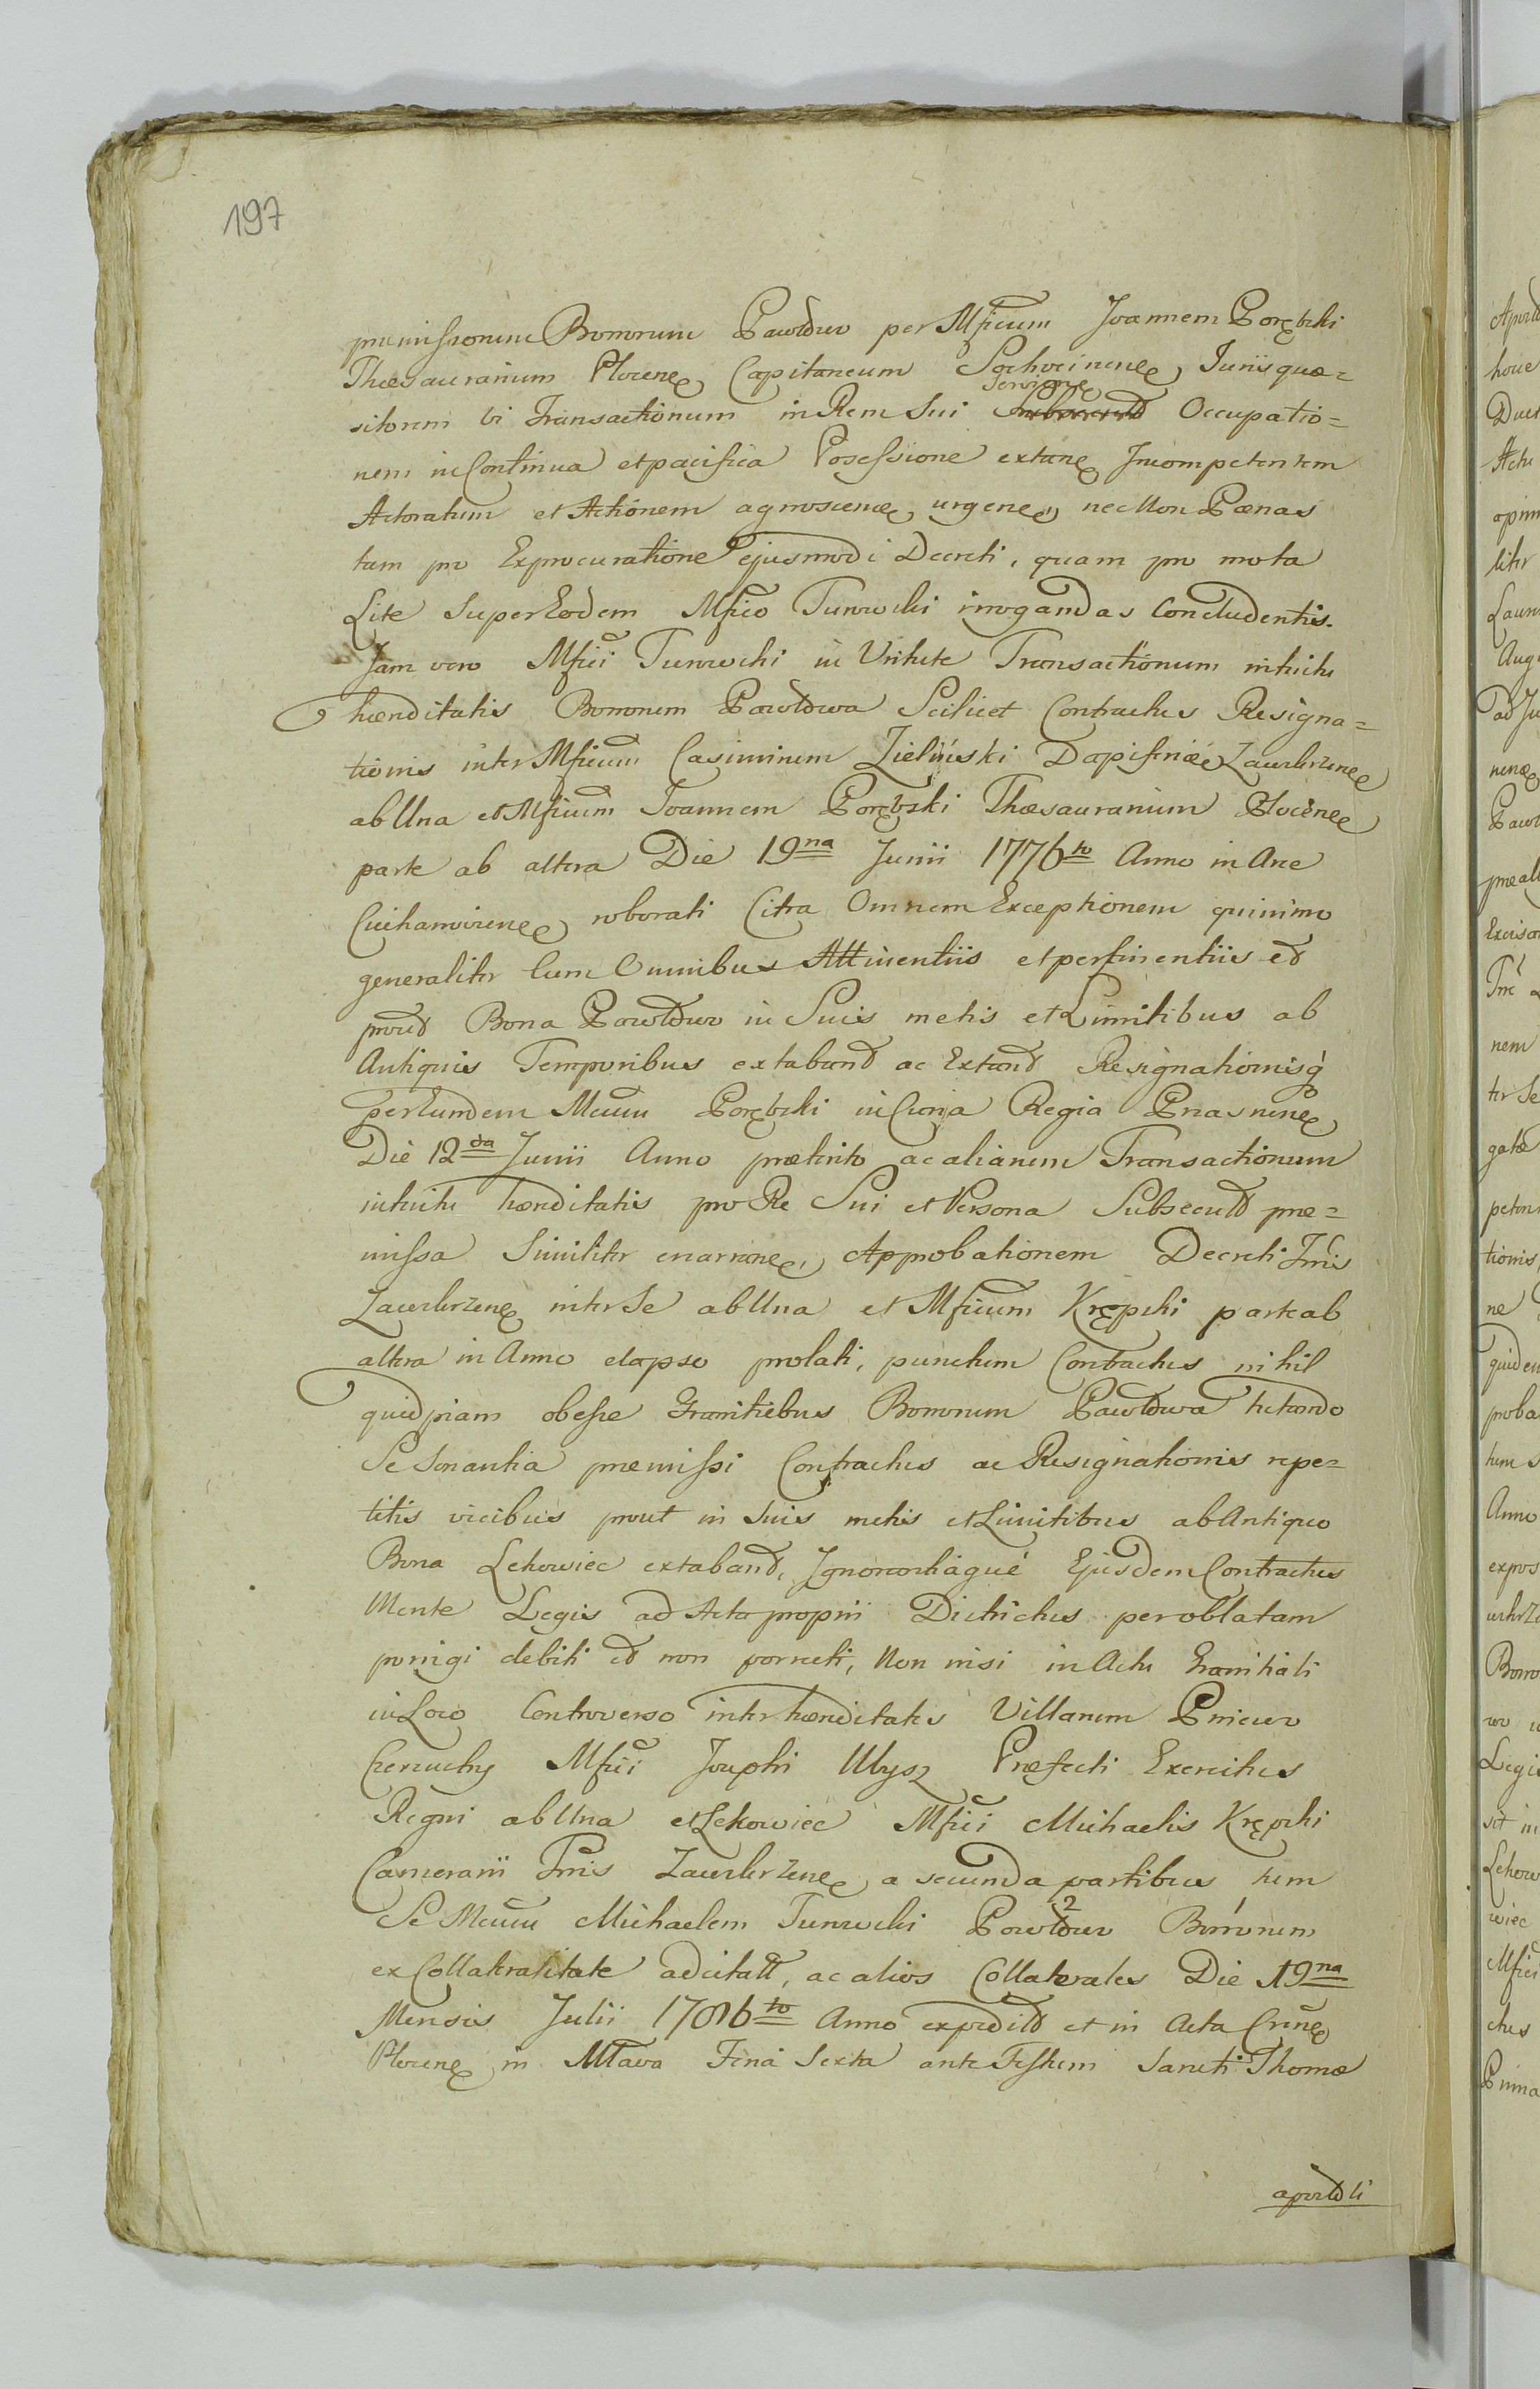 197
præmissorum Bonorum Pawłowo per Mficum Joannem Porębski
Thæsaurarium Plocen Capitaneum Sochocinen Jurisquæ=
sitorem vi Transactionum in Rem Sui Servien Occupatio=
nem in Continua et pacifica Possessione extan Incompetentem
Actoratum et Actionem agnoscen, urgen, nec Non Pœnas
tum pro Exprocuratione ejusmodi Decreti, quam pro mota
Lite Super Eodem Mfico Turowski irrogandas Concludentis.
Jam vero Mfici Turowski in Virtute Transactionum intuitu
hæreditatis Bonorum Pawłowa Scilicet Contractus Resigna=
tionis inter Mficum Casimirum Zieliński Dapiferiæ Zawkrzen
ab Una et Mficum Joannem Porębski Thæsaurarium Plocen
parte ab altera Die 19na Junii 1776to Anno in Arce
Ciechanovien roborati Citra Omnem Exceptionem quinimo
generaliter Cum Omnibus Attinentiis et pertinentiis et
prout Bona Pawłowo in Suis metis et Limitibus ab
Antiquis Temporibus extabant ac Extant Resignationisq
per Eundem Mcum Porębski in Curia Regia Prasnen
Die 12da Junii Anno præterito ac aliarum Transactionum
intuitu hæreditatis pro Re Sui et Persona Subsecut præ=
missa Similiter enarran, Approbationem Decreti Tris
Zawkrzen inter Se ab Una et Mficum Krępski parte ab
altera in Anno elapso prolati, punctum Contractus nihil
quidpiam obesse Granitiebus Bonorum Pawłowa tutando
Se Sonantia præmissi Contractus ac Resignationis repe=
titis vicibus prout in Suis metis et Limitibus ab Antiquo
Bona Lekowiec extabant, Ignorantiaque Ejusdem Contractus
Mente Legis ad Acta proprii Districtus per oblatam
porrigi debiti et non porrecti, Non nisi in Actu Granitiali
in Loco Controverso inter hæreditates Villarum Pniewo
Czeruchy Mfici Josephi Mysz Præfecti Exercitus
Regni ab Una et Lekowiec Mfici Michaelis Krępski
Camerarii Tris Zawkrzen a secunda partibus tum
Se Mcum Michaelem Turowski Pawłowo 2 Bonorum
ex Collateralitate adcitatt, ac alios Collaterales Die 19na
Mensis Julii 1786to Anno expedit et in Acta Cren
Plocen in Mława Feria Sexta ante Festum Sancti Thomæ
aportati